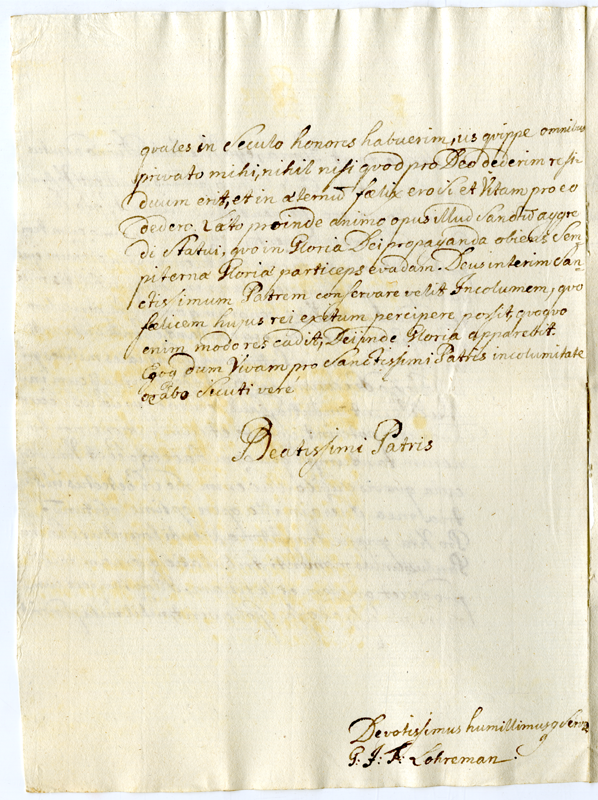 quales in Seculo honores habuerim, iis quippe omnibus
privato mihi, nihil nisi quod pro Deo dederim resi
duum erit, et in æternũ fælix ero si et Vitam pro eo
dedero. Læto proinde animo opus illud aggre
di Statui, quo in Gloria Dei propaganda obiens Sem
piternæ Gloriæ particeps evadam. Deus interim San
ctissimum Patrem conservare velit Incolumem, quo
fælicem hujus rei exitum percipere possit, quoquo
enim modo res cadit, Dei inde Gloria apparebit.
Ego dum Vivam pro Sanctissimi Patris incolumitate
orabo Secuti vere
Beatissimi Patris
Devotissimus humillimusq Servus
G: J: F: Lohreman.